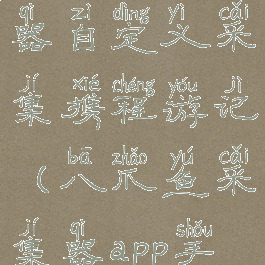 qì zì dìng yì cǎi
器自定义采
jí xié chéng yóu jì
集携程游记
bā zhǎo yú cǎi
(八爪鱼采
jí qì shǒu
集器app手